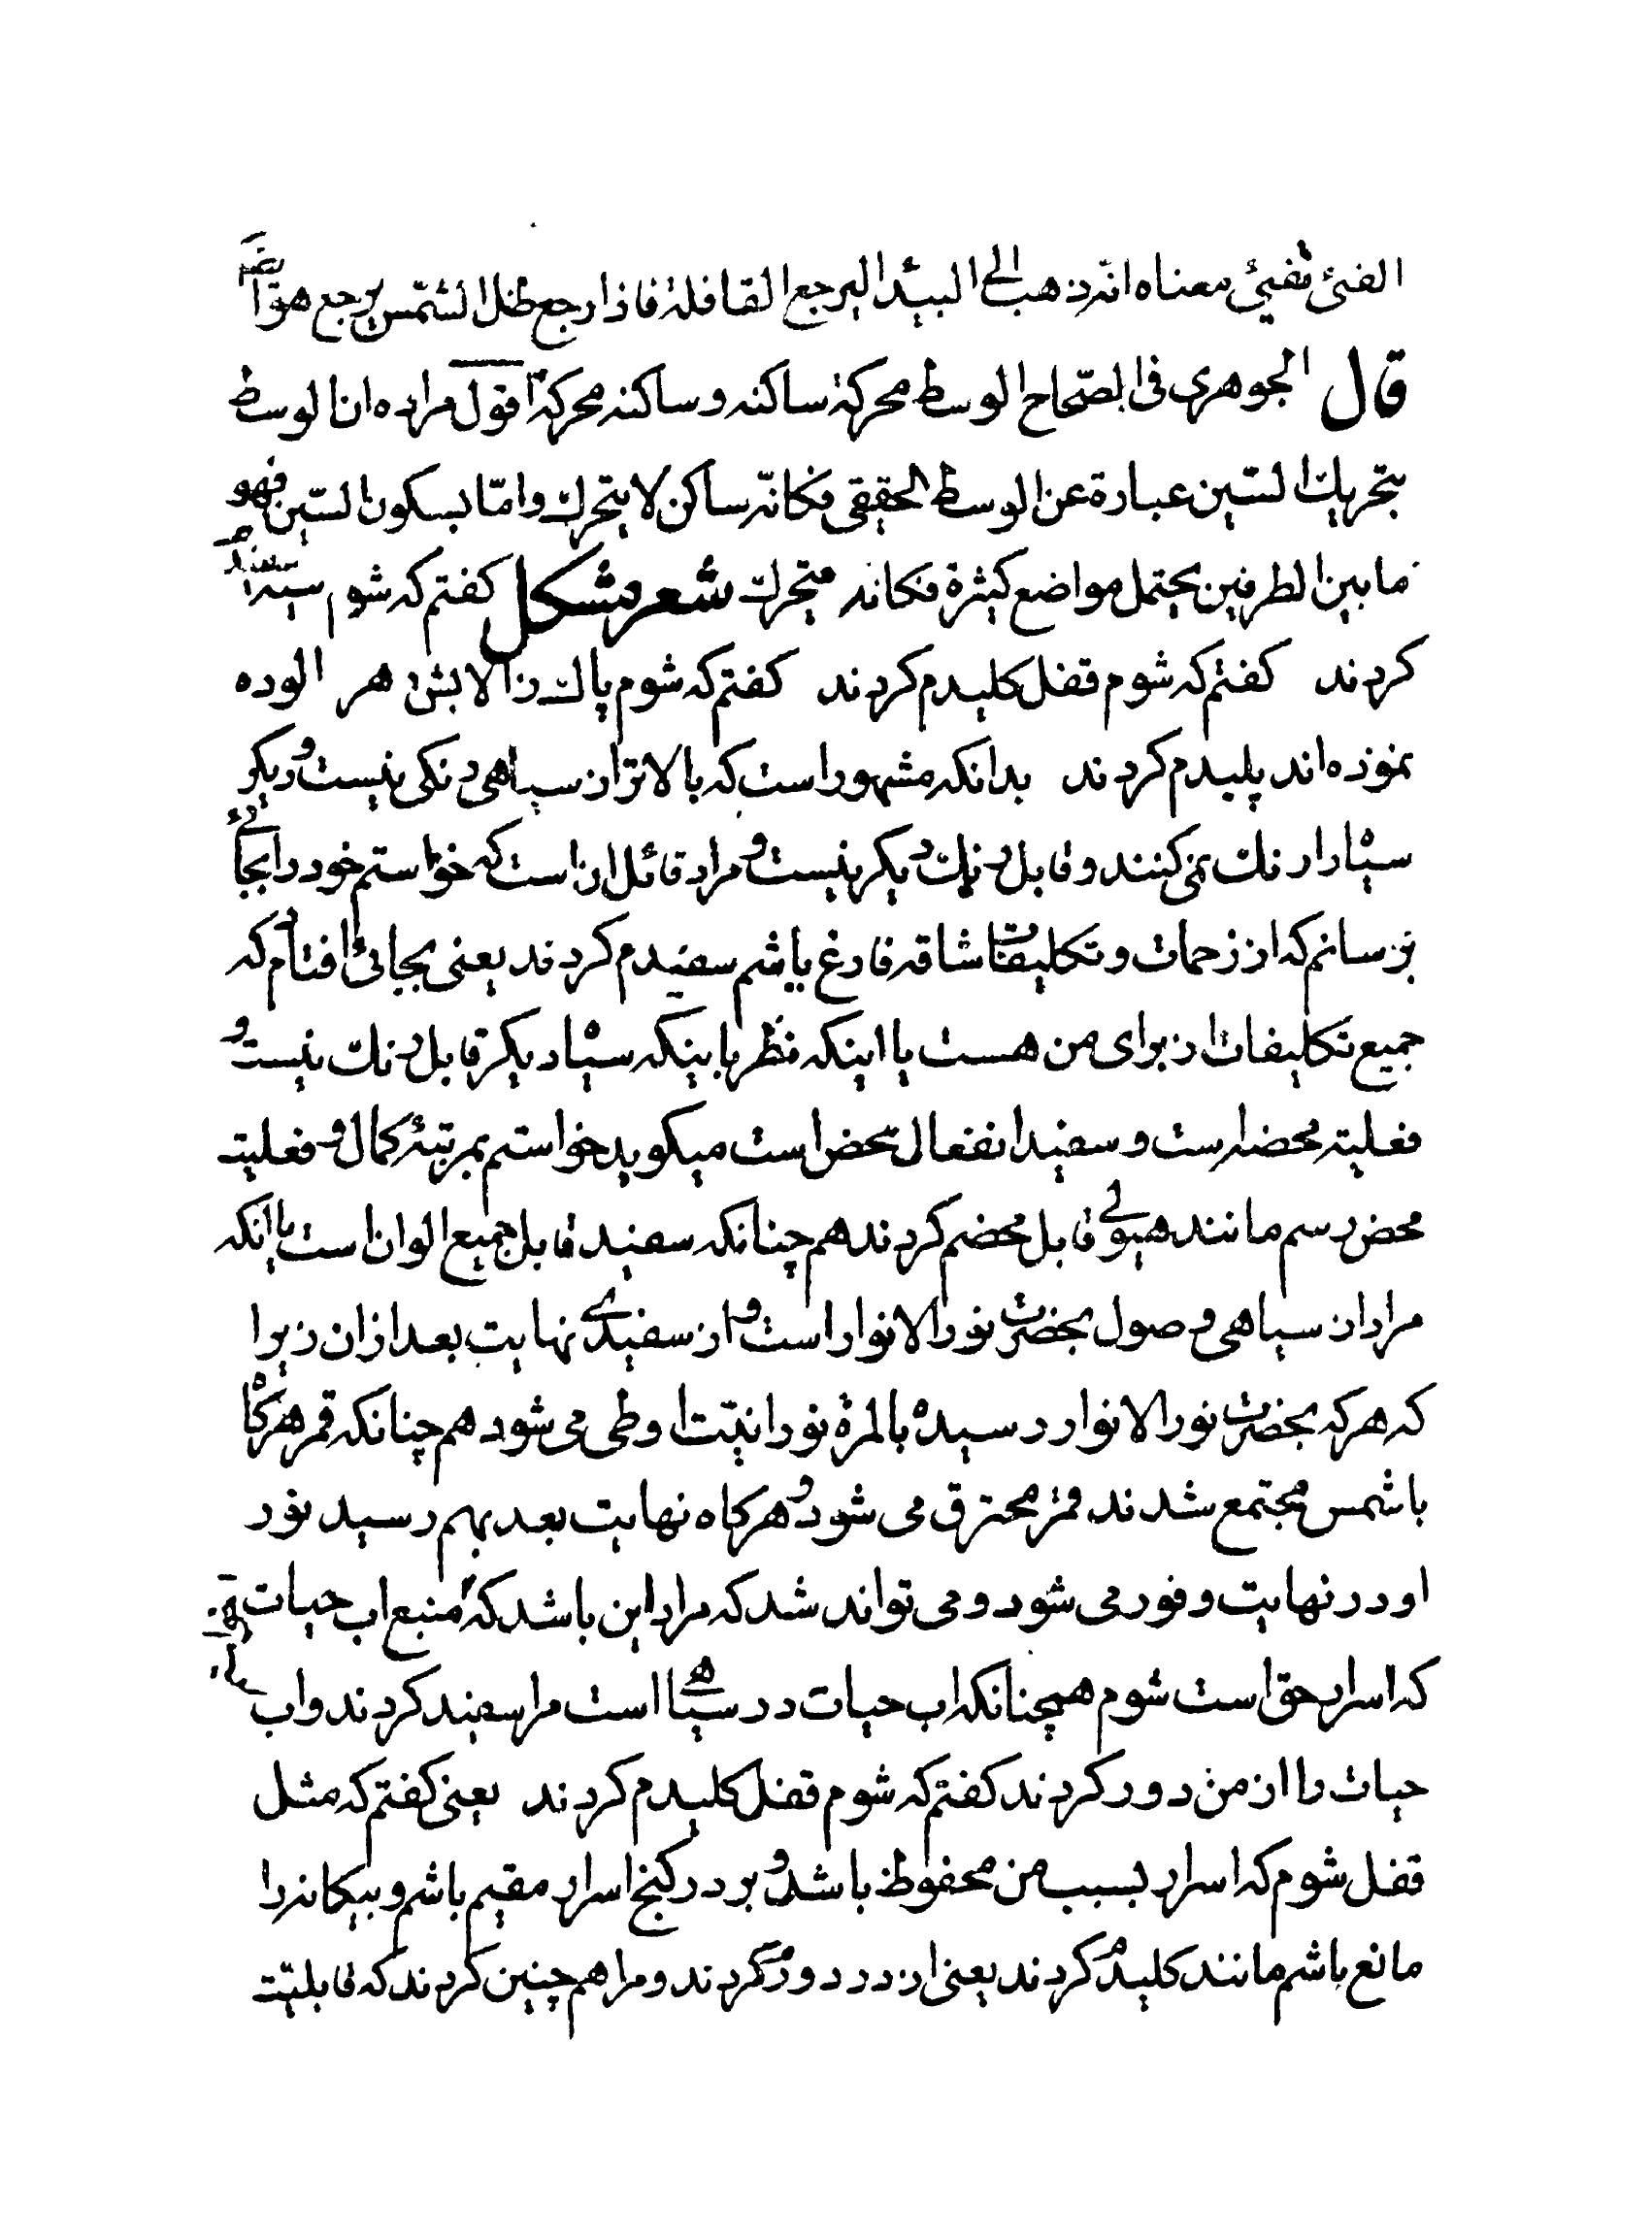 الفئ تفیئ معناه انّه ذهب الی البید الیرجع القافلة فاذا رجع ظل الشمس یرجع هو ایضا
قال الجوهری فی الصّحاح الوسط محرکة ساکنه وساکنه محرکة اقول مراده ان الوسط
بتحریك السّین عبارة عن الوسط الحقیقی فکانّه ساکن لا یتحرك وامّا بسکون السّین فهو
ما بین الطرفین یحتمل مواضع کثیرة فکانه متحرك شعر مشکل کفتم که شوم سیه سفیدم
کردند کفتم که شوم قفل کلیدم کردند کفتم که شوم پاك ز الایش هر الوده
نموده اند پلیدم کردند بدانکه مشهور است که بالاتر از سیاهی رنکی نیست و دیکر
سیاه را رنك نمی کنند و قابل رنك دیکر نیست و مراد قائل ان است که خواستم خود را بجائی
برسانم که از زحمات و تکلیفات شاقه فارغ باشم سفیدم کردند یعنی بجائی افتادم که
جمیع تکلیفات از برای من هست یا اینکه نظر باینکه سیاه دیکر قابل رنك نیست و
فعلیته محضه است و سفید انفعال محض است میکوید خواستم بمرتبهٔ کمال و فعلیت
محض رسم مانند هیولی قابل محضم کردند هم چنانکه سفید قابل جمیع الوان است یا انکه
مراد از سیاهی وصول بحضرت نور الانوار است و از سفیدی نهایت بعد از ان زیرا
که هر که بحضرت نور الانوار رسیده بالمرة نورانیّت او طی می شود هم چنانکه قمر هرکاه
با شمس مجتمع شدند قمر محترق می شود و هرکاه نهایت بعد بهم رسید نور
او در نهایت وفور می شود و می تواند شد که مراد این باشد که منبع اب حیات
که اسرار حق است شوم همچنانکه اب حیات در سیاهی است مرا سفید کردند و اب
حیات را از من دور کردند کفتم که شوم قفل کلیدم کردند یعنی کفتم که مثل
قفل شوم که اسرار بسبب من محفوظ باشد و بر در کنج اسرار مقیم باشم و بیکانه را
مانع باشم مانند کلیدم کردند یعنی از در دورم کردند و مرا هم چنین کردند که قابلیّت